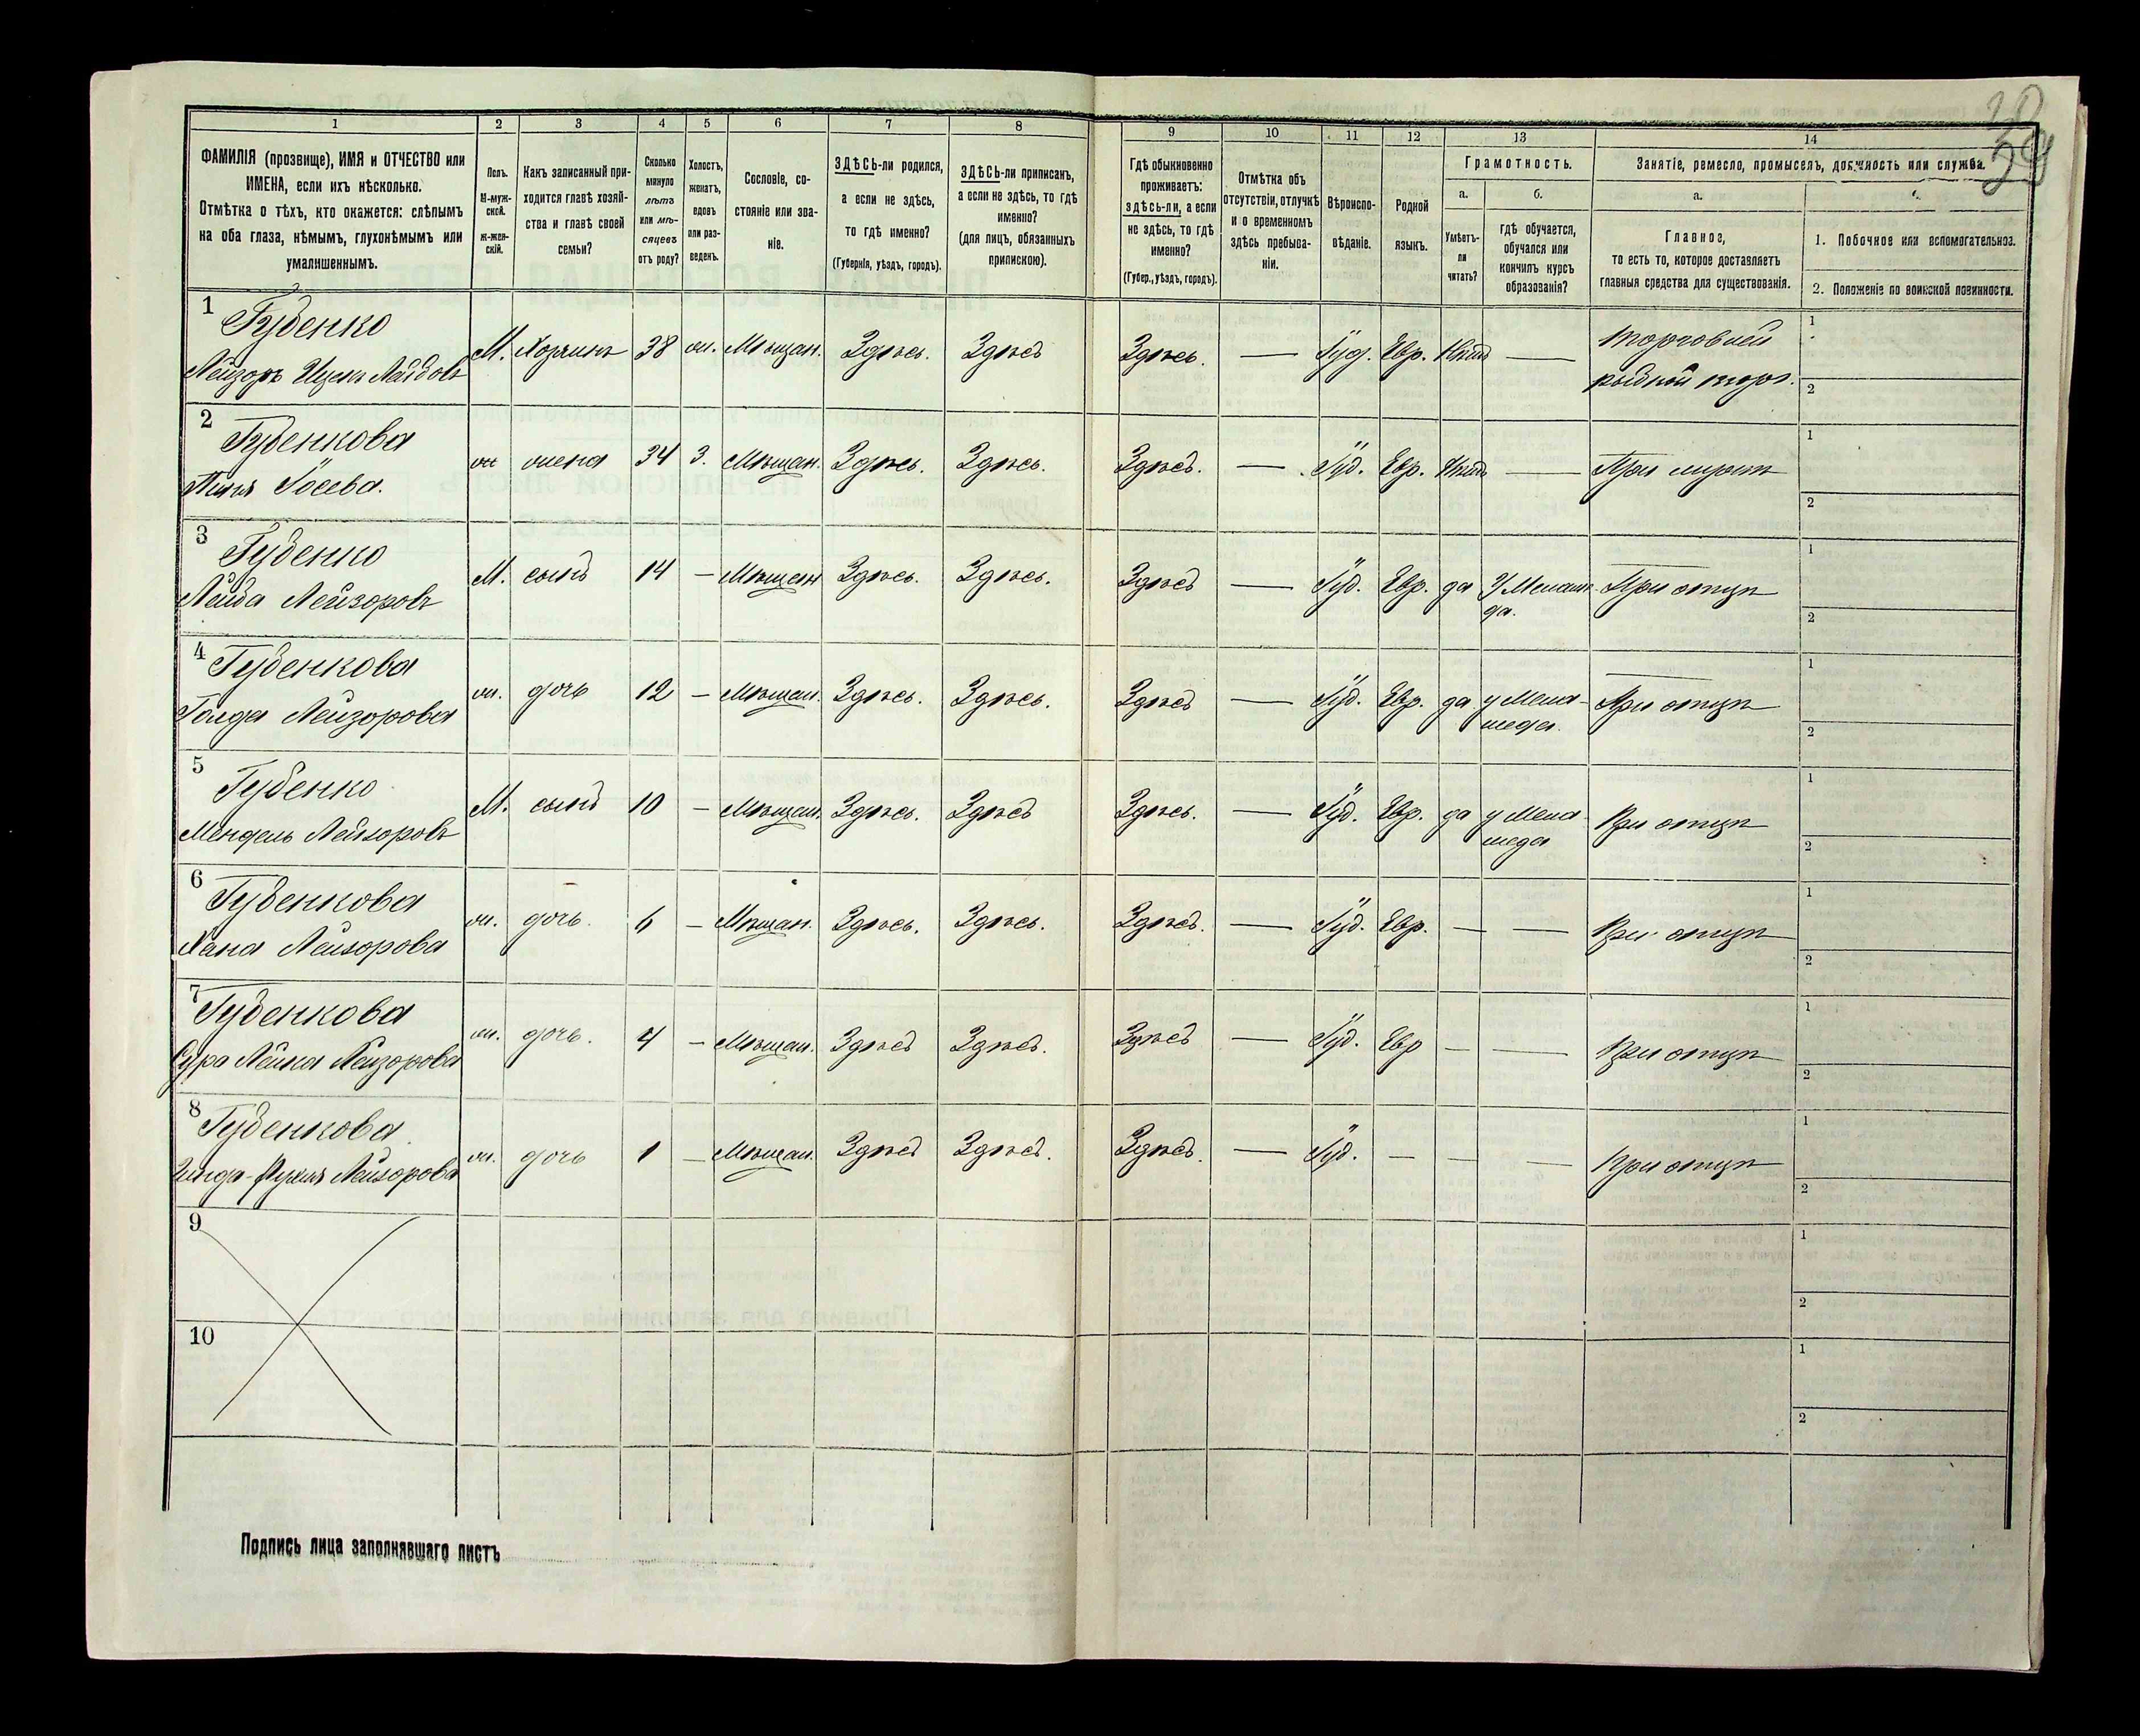 1
2
3
4
5
6
7
8
9
10
11
12
13
14
ФАМИЛІЯ (прозвище), ИМЯ и ОТЧЕСТВО или
ИМЕНА, если ихъ нѣсколько.
Отмѣтка о тѣхъ, кто окажется: слѣпымъ
на оба глаза, нѣмымъ, глухонѣмымъ или
умалишеннымъ.
Полъ.
М-муж-
ской.
ж-жен-
скій.
Какъ записанный при-
ходится главѣ хозяй-
ства и главѣ своей
семьи?
Сколько
минуло
лѣтъ
или мѣ-
сяцевъ
отъ роду?
Холостъ,
женатъ,
вдовъ
или раз-
веденъ.
Сословіе, со-
стояніе или зва-
ніе.
ЗДѢСЬ-ли родился,
а если не здѣсь,
то гдѣ именно?
(Губернія, уѣздъ, городъ).
ЗДѢСЬ-ли приписанъ,
а если не здѣсь, то гдѣ
именно?
(для лицъ, обязанныхъ
припискою).
Гдѣ обыкновенно
проживаетъ:
здѣсь-ли, а если
не здѣсь, то гдѣ
именно?
(Губер., уѣздъ, городъ).
Отмѣтка объ
отсутствіи, отлучкѣ
и о временномъ
здѣсь пребыва-
ніи.
Вѣроиспо-
вѣданіе.
Родной
языкъ.
Грамотность.
а.
Умѣетъ-
ли
читать?
б.
гдѣ обучается,
обучался или
кончилъ курсъ
образованія?
Занятіе, ремесло, промыселъ, должность или служба.
а.
Главное,
то есть то, которое доставляетъ
главныя средства для существованія.
1. Побочное или вспомогательное.
2. Положеніе по воинской повинности.
1
Губенко
Лейзоръ Ицекъ
М. Хозяинъ 38 ж. Мѣщан. Здѣсь. Здѣсь Здѣсь. — Іуд. Евр. Нѣтъ — торговлей
1
2
2
Губенкова
ж жена 34 З. Мѣщан. Здѣсь. Здѣсь. Здѣсь. — Іуд. Евр. Нѣтъ — При мужѣ
1
2
3
Губенко
Лейба Лейзоровъ
М. сынъ 14 — Мѣщан Здѣсь. Здѣсь. Здѣсь — Іуд. Евр. да При отцѣ
1
2
4
Губенкова
Голда Лейзорова
ж. дочь 12 — Мѣщан. Здѣсь. Здѣсь. Здѣсь — Іуд. Евр. да у Мела-
меда. При отцѣ
1
2
5
Губенко
Мендель Лейзоровъ
М. сынъ 10 — Мѣщан. Здѣсь. Здѣсь Здѣсь. — Іуд. Евр. да у Мела-
меда При отцѣ
1
2
6
Губенкова
Хана Лейзорова
ж. дочь. 6 — Мѣщан. Здѣсь. Здѣсь. Здѣсь. — Іуд. Евр. — — При отцѣ
1
2
7
Губенкова
Сура Лейка Лейзорова
ж. дочь. 4 — Мѣщан. Здѣсь Здѣсь. Здѣсь — Іуд. Евр — — При отцѣ
1
2
8
Губенкова
Лейзорова
ж. дочь 1 — Мѣщан. Здѣсь Здѣсь. Здѣсь. — Іуд. — — — При отцѣ
1
2
9
1
2
10
1
2
Подпись лица заполнявшаго листъ